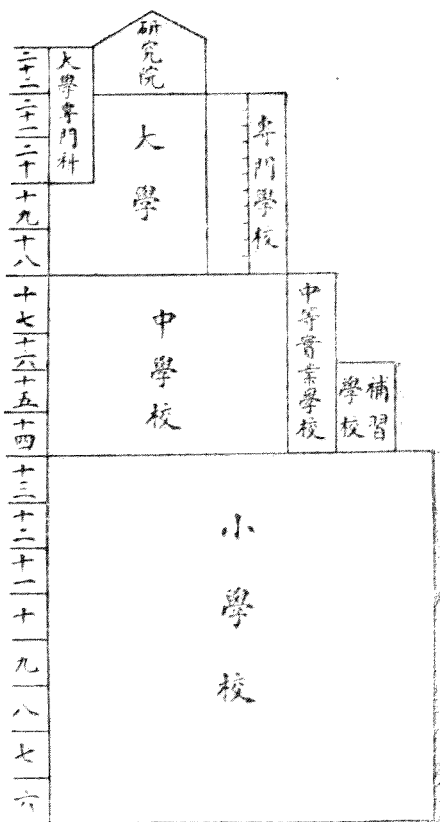 研究院
大學專門科
大學
専門學校
中學校
中等實業學校
補習
學校
小學校
二十二
二十一
二十
十九
十八
十七
十六
十五
十四
十三
十二
十一
十
九
八
七
六